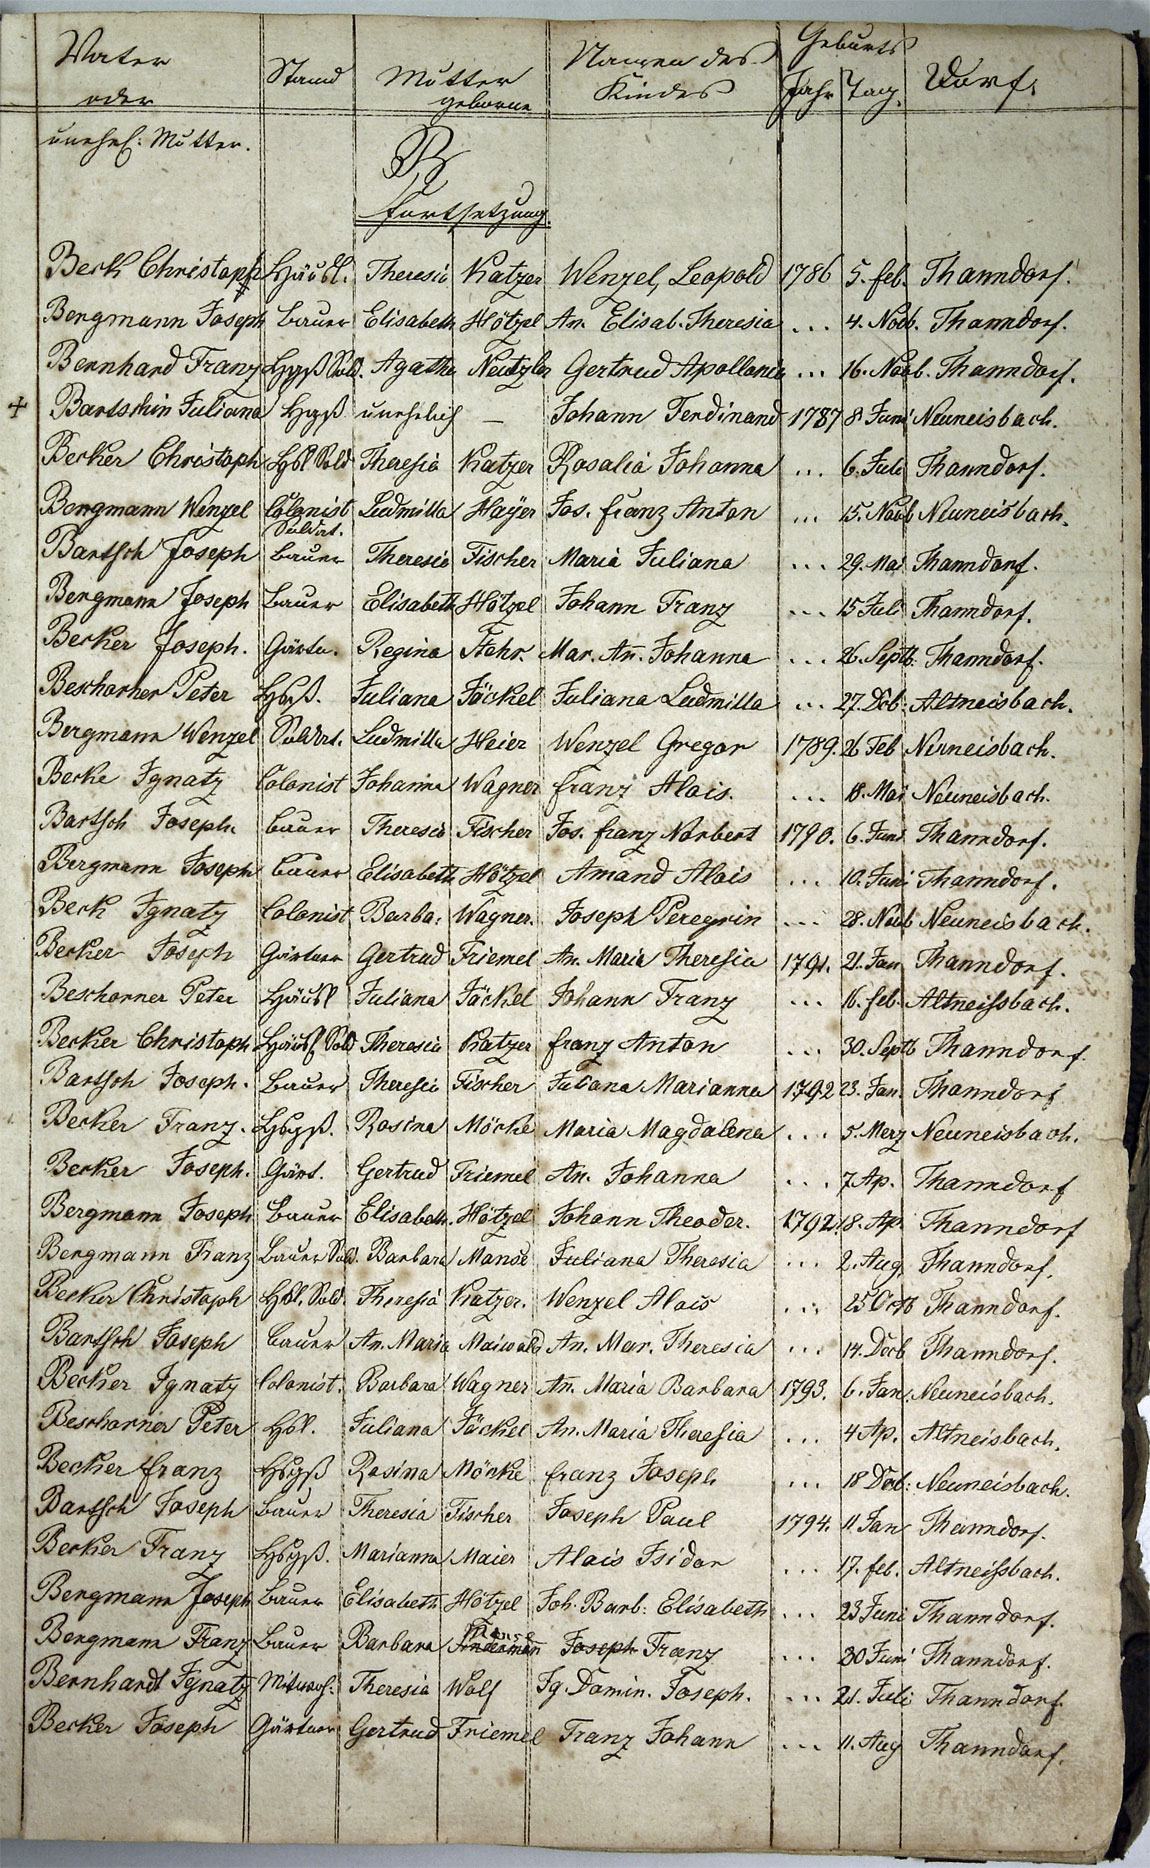 Vater Stand Mutter Namen des Geburts Dorf.
oder geborne Kindes Jahr Tag.
unehel: Mutter.
B
Fortsetzung.
Beck Christoph Häusl. Theresia Katzer Wenzel, Leopold 1786 5. Feb. Thanndorf.
Bergmann Joseph Bauer Elisabeth Hötzel An. Elisab. Theresia ... 4. Novb. Thanndorf.
Bernhard Franz Hgß Sold. Agatha Neutzler Gertrud Apollonia ... 16. Novb. Thanndorf.
+ Bartschin Juliana Hgß unehelich — Johann Ferdinand 1787 8 Juni Neuneisbach.
Becker Christoph Hsl Sold Theresia Katzer Rosalia Johanna ... 6. Juli Thanndorf.
Bergmann Wenzel Colonist Ludmilla Hayer Jos. Franz Anton ... 15. Novb Neuneisbach.
Soldat.
Bartsch Joseph Bauer Theresia Fischer Maria Juliana ... 29. Mai Thanndorf.
Bergmann Joseph Bauer Elisabeth Hötzel Johann Franz ... 15 Juli Thanndorf.
Becker Joseph. Gärtn. Regina Stehr. Mar. An̄. Johanna ... 26. Septb. Thanndorf.
Beschorner Peter Hsgß. Juliana Jäckel Juliana Ludmilla ... 27. Dcb: Altneisbach.
Bergmann Wenzel Soldat. Ludmilla Heier Wenzel Gregor 1789. 26 Feb Neuneisbach.
Becke Ignatz Colonist Johanna Wagner Franz Alois. ... 18. Mai Neuneisbach.
Bartsch Joseph. Bauer Theresia Fischer Jos. Franz Norbert 1790. 6. Juni Thanndorf.
Bergmann Joseph Bauer Elisabeth Hötzel Amand Alois ... 10. Juni Thanndorf.
Beck Ignatz Colonist Barba: Wagner. Joseph Peregrin ... 28. Novb Neuneisbach.
Becker Joseph Gärtner Gertrud Friemel An. Maria Theresia 1791. 21. Jan Thanndorf.
Beschorner Peter Häusl Juliana Jäckel Johann Franz ... 16. Feb. Altneißbach.
Becker Christoph Häusl Sold Theresia Katzer Franz Anton ... 30. Septb Thanndorf.
Bartsch Joseph. Bauer Theresia Fischer Juliana Marianna 1792 23. Jan. Thanndorf
Becker Franz. Hsgß. Rosina Möcke Maria Magdalena ... 5. Merz Neuneisbach.
Becker Joseph. Gärt. Gertrud Friemel An. Johanna ... 7 Ap. Thanndorf
Bergmann Joseph Bauer Elisabeth Hötzel Johann Theodor. 1792. 18. Ap. Thanndorf
Bergmann Franz Bauer Sold. Barbara Manse Juliana Theresia ... 2. Aug. Thanndorf.
Becker Christoph Hsl. Sold. Theresia Katzer. Wenzel Alois ... 25 Octb Thanndorf.
Bartsch Joseph Bauer An. Maria Maiwald An. Mar. Theresia ... 14. Decb Thanndorf.
Becker Ignatz Colonist. Barbara Wagner An̄. Maria Barbara 1793. 6. Jan. Neuneisbach.
Beschorner Peter Hsl. Juliana Jäckel An. Maria Theresia ... 4 Ap. Altneisbach.
Becker Franz Hsgß Rosina Möcke Franz Joseph ... 18 Dcb: Neuneisbach.
Bartsch Joseph Bauer Theresia Fischer Joseph Paul 1794. 11 Jan Thanndorf.
Becker Franz Hsgß. Marianna Maier Alois Isidor ... 17. Feb. Altneißbach.
Bergmann Joseph Bauer Elisabeth Hötzel Joh. Barb: Elisabeth ... 23 Juni Thanndorf.
Bergmann Franz Bauer Barbara Manse Joseph Franz ... 30 Juni Thanndorf.
Bernhardt Ignatz Theresia Wolf Ig. Domin. Joseph. ... 21. Juli Thanndorf
Becker Joseph Gärtner Gertrud Friemel Franz Johann ... 11. Aug Thanndorf.